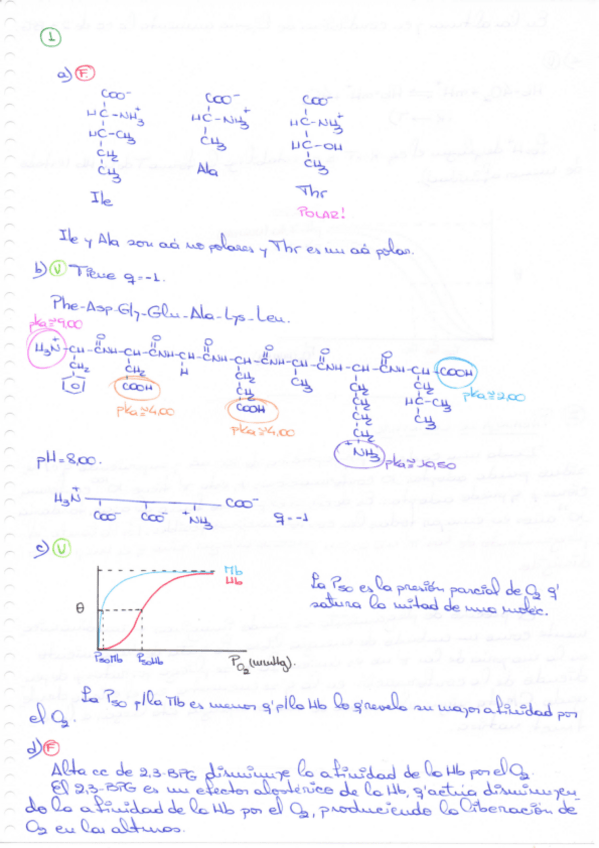 1
a) F
COO⁻ COO⁻ COO⁻
HC-NH₃⁺ HC-NH₃⁺ HC-NH₃⁺
HC-CH₃ CH₃ HC-OH
CH₂ CH₃
CH₃
Ile Ala Thr
POLAR!
Ile y Ala son aá no polares y Thr es un aá polar.
b) V Tiene q=-1.
Phe-Asp-Gly-Glu-Ala-Lys-Leu.
pka≅9,00
H₃N⁺-CH-CNH-CH-CNH-CH-CNH-CH-CNH-CH-CNH-CH-CNH-CH-COOH
O O O O O O
CH₂ CH₂ H CH₂ CH₃ CH₂ CH₂
COOH CH₂ CH₂ HC-CH₃
COOH CH₂ CH₃
CH₂
⁺NH₃
pka≅4,00
pka≅4,00
pka≅2,00
pka≅10,50
pH=8,00.
H₃N⁺ COO⁻
COO⁻ COO⁻ ⁺NH₃ q=-1
c) V
Mb
Hb
θ
P50Mb P50Hb
PO₂ (mmHg).
La P50 es la presión parcial de O₂ q'
satura la mitad de una moléc.
La P50 p/la Mb es menor q' p/la Hb lo q' revela su mayor afinidad por
el O₂.
d) F
Alta cc de 2,3-BPG disminuye la afinidad de la Hb por el O₂.
El 2,3-BPG es un efector alostérico de la Hb, q' actúa disminuyen
do la afinidad de la Hb por el O₂, produciendo la liberación de
O₂ en las alturas.